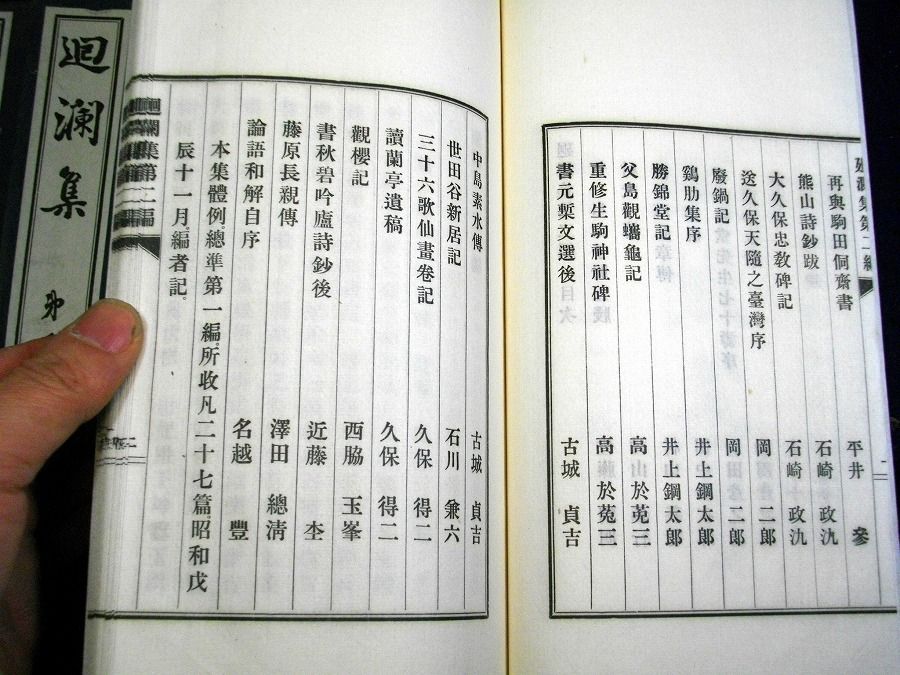 廻瀾集第二編
再與駒田侗齋書 平井 參
熊山詩鈔跋 石崎 政氿
大久保忠敎碑記 石崎 政氿
送久保天隨之臺灣序 岡田 二郎
廢鍋記 岡 二郎
鷄肋集序 井上鋼太郎
勝錦堂記 井上鋼太郎
父島觀蠵龜記 高 於菟三
重修生駒神社碑 高 於菟三
書元槧文選後 古城 貞吉
中島素水傳 古城 貞吉
世田谷新居記 石川 兼六
三十六歌仙畫卷記 久保 得二
讀蘭亭遺稿 久保 得二
觀櫻記 西脇 玉峯
書秋碧吟廬詩鈔後 近藤 杢
藤原長親傳 澤田 總淸
論語和解自序 名越 豐
本集體例。總準第一編。所收凡二十七篇昭和戊
辰十一月。編者記。
廻瀾集第二編
廻瀾集 第